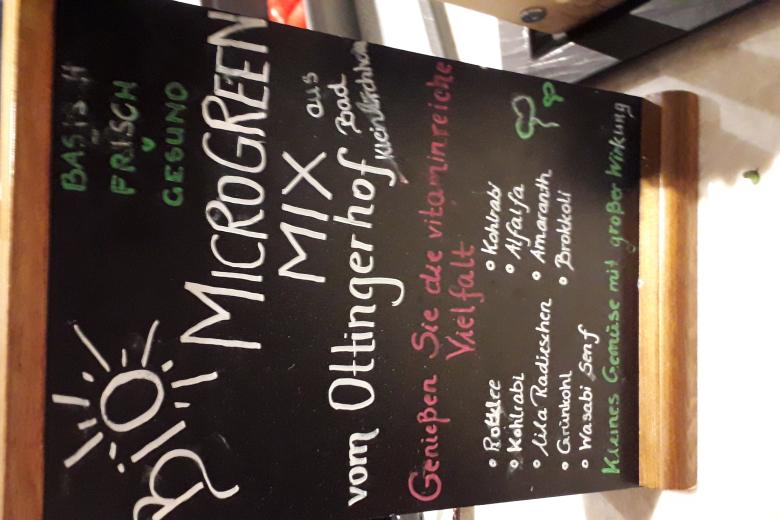 BASISCH
FRISCH
GESUND
BIO
MICROGREEN
MIX
vom Ottingerhof
aus
Bad
Kleinkirchheim
Genießen Sie die vitaminreiche
Vielfalt
• Rotklee
• Kohlrabi
• lila Radieschen
• Grünkohl
• Wasabi Senf
• Kohlrabi
• Alfalfa
• Amaranth
• Brokkoli
Kleines Gemüse mit großer Wirkung